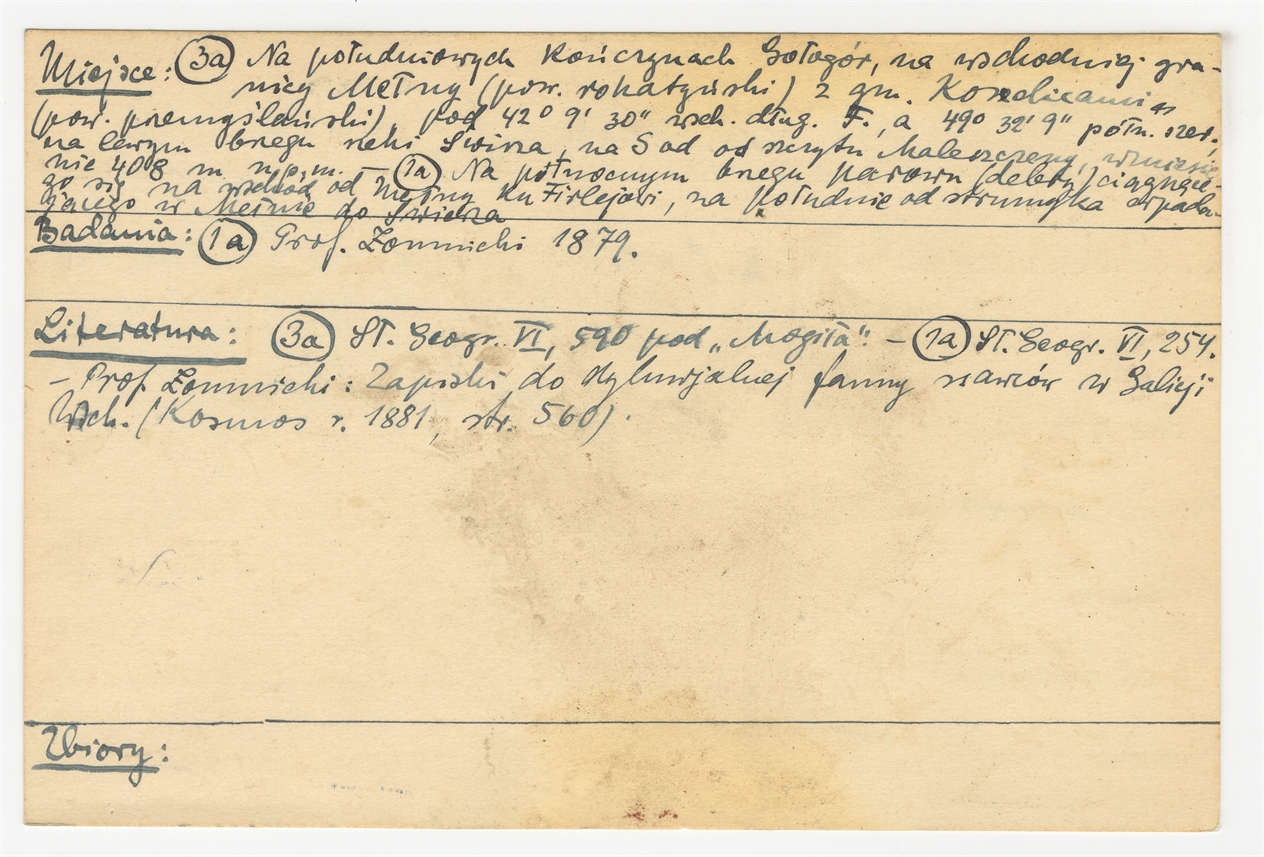 Miejsce: (3a) Na południowych Kończynach Gołogór, na wschodniej gra-
nicy Mełny (pow. rohatyński) z gm. Korzelicami
(pow. przemyślański), pod 42° 9' 30" wsch. dług. F., a 49° 32' 9" półn. szer.
na lewym brzegu rzeki Świrza, na S od od szczytu wzniesie-
nie 408 m n.p.m. — (1a) Na północnym brzegu parowu (debry) ciągnące-
go się na wschód od Mełny ku Firlejowi, na południe od strumyka wpada-
jącego w Mełnie do Świrza
Badania: (1a) Prof. Łomnicki 1879.
Literatura: (3a) Sł. Geogr. VI, 590 pod „Mogiła". — (1a) Sł. Geogr. VI, 254.
— Prof. Łomnicki: Zapiski do dyluwjalnej fauny ssawców w Galicji
Wsch. (Kosmos r. 1881, str. 560).
Zbiory: